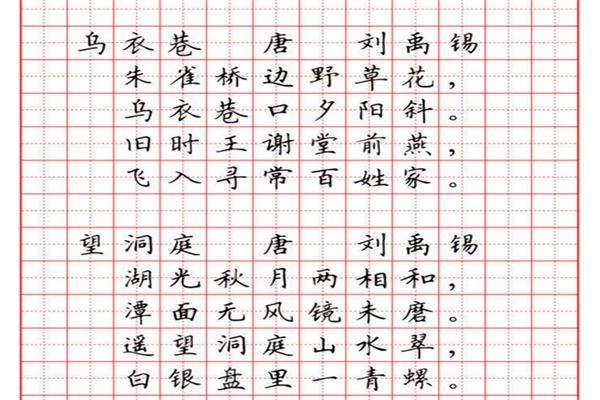 乌衣巷 唐 刘禹锡
朱雀桥边野草花，
乌衣巷口夕阳斜。
旧时王谢堂前燕，
飞入寻常百姓家。
望洞庭 唐 刘禹锡
湖光秋月两相和，
潭面无风镜未磨。
遥望洞庭山水翠，
白银盘里一青螺。